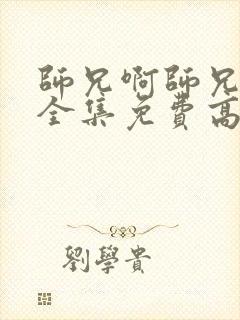 師兄啊師兄
全集免費高
劉學貴